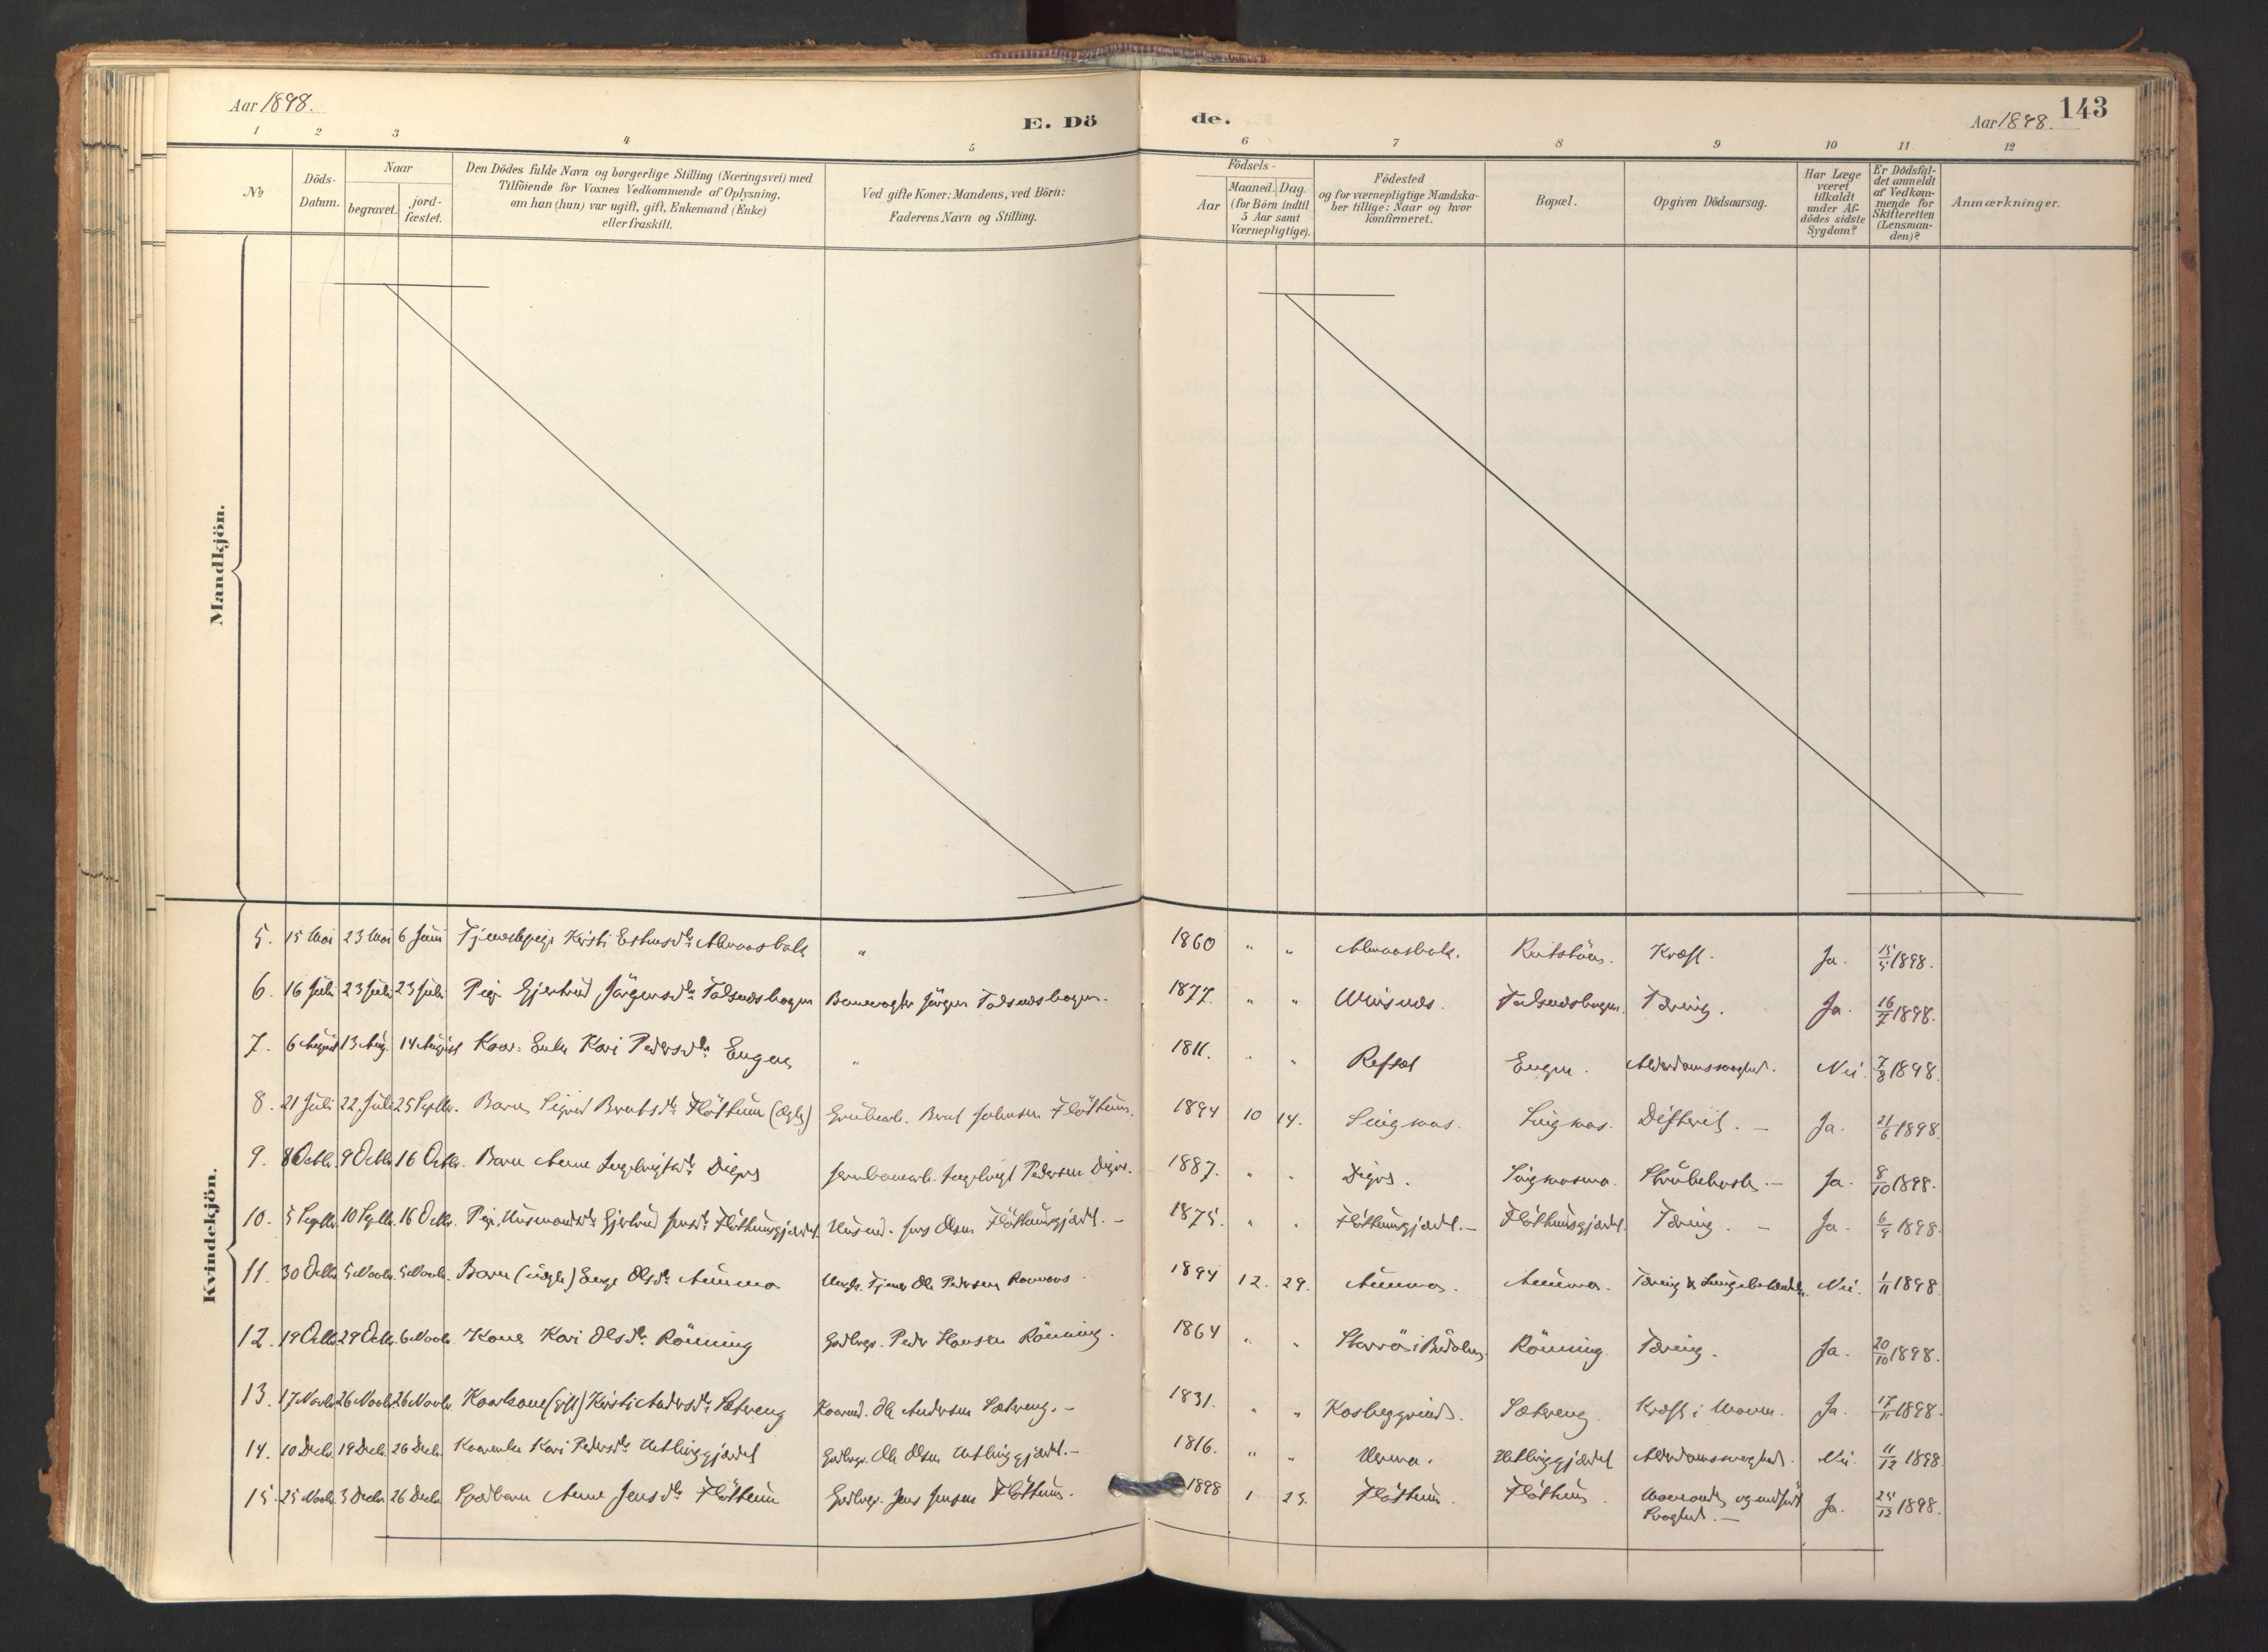 Aar 1898.
E. Dö
de.
Aar 1898.
143
1 2 3 4 5 6 7 8 9 10 11 12
No
Döds-
Datum.
Naar
begravet.
jord-
fæstet.
Den Dödes fulde Navn og borgerlige Stilling (Næringsvei) med
Tilföiende for Voxnes Vedkommende af Oplysning,
om han (hun) var ugift, gift, Enkemand (Enke)
eller fraskilt.
Ved gifte Koner: Mandens, ved Börn:
Faderens Navn og Stilling.
Födsels-
Aar
Maaned. Dag.
(for Börn indtil
5 Aar samt
Værnepligtige).
Födested
og for værnepligtige Mandska-
ber tillige: Naar og hvor
konfirmeret.
Bopæl.
Opgiven Dödsaarsag.
Har Læge
været
tilkaldt
under Af-
dödes sidste
Sygdom?
Er Dödsfal-
det anmeldt
af Vedkom-
mende for
Skifteretten
(Lensman-
den)?
Anmærkninger.
Mandkjön.
Kvindekjön.
5. 15 Mai 23 Mai 6 Juni Kirsti " 1860 " " Kræft. Ja. 15/5 1898.
6. 16 Juli 23 Juli 23 Juli Pige Gjertrud Jörgensdtr Talsneshagen Banevogter Jörgen Talsneshagen. 1877. " " Talsneshagen. Tæring. Ja. 16/7 1898.
7. 6 August 13 Aug. 14 August Kaar-Enke Kari Pedersdtr Engen " 1811. " " Refset Engen. Alderdomssvaghed. Nei. 7/8 1898.
8. 21 Juli 22 Juli 25 Septbr. Barn Sigrid Flöttum (ægte) Johnsen Flöttum. 1894 10 14. Singsaas. Singsaas. Difterit. – Ja. 21/6 1898.
9. 8 Octbr. 9 Octbr. 16 Octbr. Barn Anne Ingebrigtsdtr Digre Ingebrigt Pedersen Digre. 1887. " " Digre. Strubehoste. – Ja. 8/10 1898.
10. 5 Septbr. 10 Septbr. 16 Octbr. Pige, Husmandsdtr Gjertrud Jensdtr Flöttumsgjærdet. Husmd. Jens Olsen Flöttumsgjærdet. – 1875. " " Flöttumsgjærdet. – Flöttumsgjærdet. Tæring. – Ja. 6/9 1898.
11. 30 Octbr. 5 Novbr. 5 Novbr. Barn (uægte) Olsdtr Aunmo Ungk. Tjener Ole Pedersen 1894 12. 29. Aunmo. Aunmo. Tæring & Lungebetændelse. Nei. 1/11 1898.
12. 19 Octbr. 29 Octbr. 6 Novbr. Kone Kari Olsdtr Rönning Gaardbrgr. Peder Hansen Rönning. 1864 " " Storrö i Budalen. Rönning Tæring. Ja. 20/10 1898.
13. 17 Novbr. 26 Novbr. 26 Novbr. Kaarkone (gift) Kirsti Andersdtr Sætreng Kaarmd. Ole Andersen Sætreng. – 1831. " " Sætreng. Kræft i Maven. Ja. 17/11 1898.
14. 10 Decbr. 19 Decbr. 26 Decbr. Kaarenke Kari Pedersdtr Gaardbrgr. Ole Olsen 1816. " " Alderdomssvaghed. Nei. 11/12 1898.
15. 25 Novbr. 3 Decbr. 26 Decbr. Spædbarn Anne Jensdtr Flöttum Gaardbrgr. Jens Jensen Flöttum. 1898 1. 23. Flöttum. Flöttum. Maveonde og medfödt
Svaghed. – Ja. 25/12 1898.